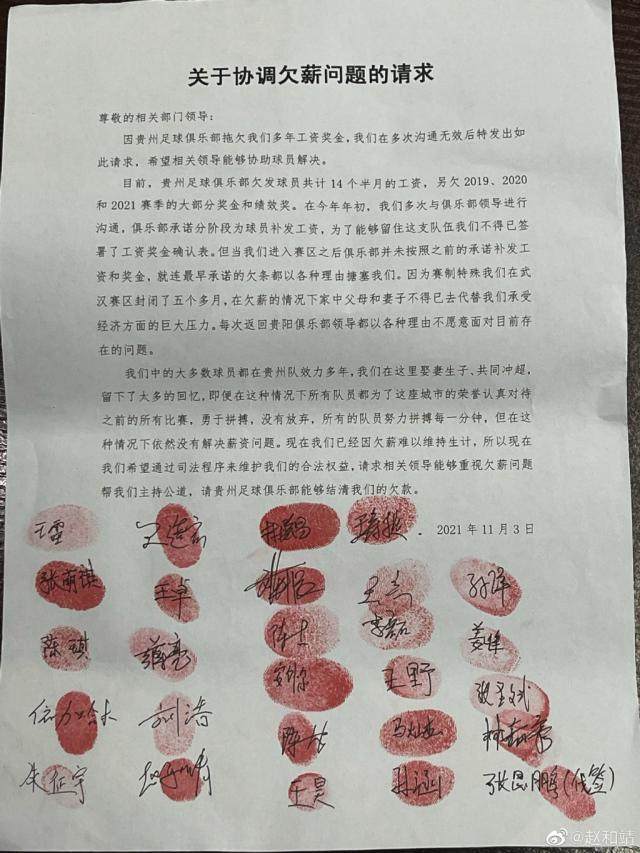 关于协调欠薪问题的请求
尊敬的相关部门领导：
因贵州足球俱乐部拖欠我们多年工资奖金，我们在多次沟通无效后特发出如
此请求，希望相关领导能够协助球员解决。
目前，贵州足球俱乐部欠发球员共计 14 个半月的工资，另欠 2019、2020
和 2021 赛季的大部分奖金和绩效奖。在今年年初，我们多次与俱乐部领导进行
沟通，俱乐部承诺分阶段为球员补发工资，为了能够留住这支队伍我们不得已签
署了工资奖金确认表。但当我们进入赛区之后俱乐部并未按照之前的承诺补发工
资和奖金，就连最早承诺的欠条都以各种理由搪塞我们。因为赛制特殊我们在武
汉赛区封闭了五个多月，在欠薪的情况下家中父母和妻子不得已去代替我们承受
经济方面的巨大压力。每次返回贵阳俱乐部领导都以各种理由不愿意面对目前存
在的问题。
我们中的大多数球员都在贵州队效力多年，我们在这里娶妻生子、共同冲超，
留下了太多的回忆，即便在这种情况下所有队员都为了这座城市的荣誉认真对待
之前的所有比赛，勇于拼搏，没有放弃，所有的队员努力拼搏每一分钟，但在这
种情况下依然没有解决薪资问题。现在我们已经因欠薪难以维持生计，所以现在
我们希望通过司法程序来维护我们的合法权益，请求相关领导能够重视欠薪问题
帮我们主持公道，请贵州足球俱乐部能够结清我们的欠款。
2021 年 11 月 3 日
张萌琪 王卓
陈琪 李磊 姜伟
王野
刘涛
朱征宇 王昊 张昆鹏(代签)
@赵和靖